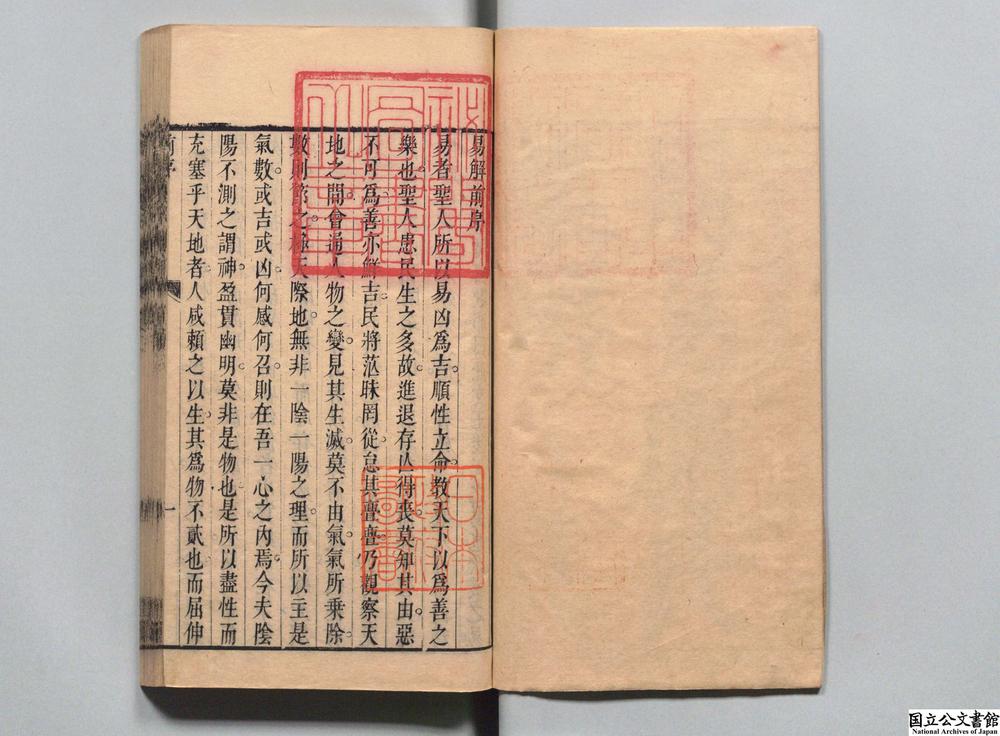 易解前序
易者聖人所以易凶爲吉順性立命教天下以爲善之
樂也聖人患民生之多故進退存亾得喪莫知其由惡
不可爲善亦鮮吉民將茫昧罔從怠其亹亹乃觀察天
地之間會通人物之變見其生滅莫不由氣氣所乘除
數則節之極天際地無非一陰一陽之理而所以主是
氣數或吉或凶何感何召則在吾一心之內焉今夫陰
陽不測之謂神盈貫幽明莫非是物也是所以盡性而
充塞乎天地者人咸賴之以生其爲物不貳也而屈伸
前序
一
日本
圖書
国立公文書館
National Archives of Japan